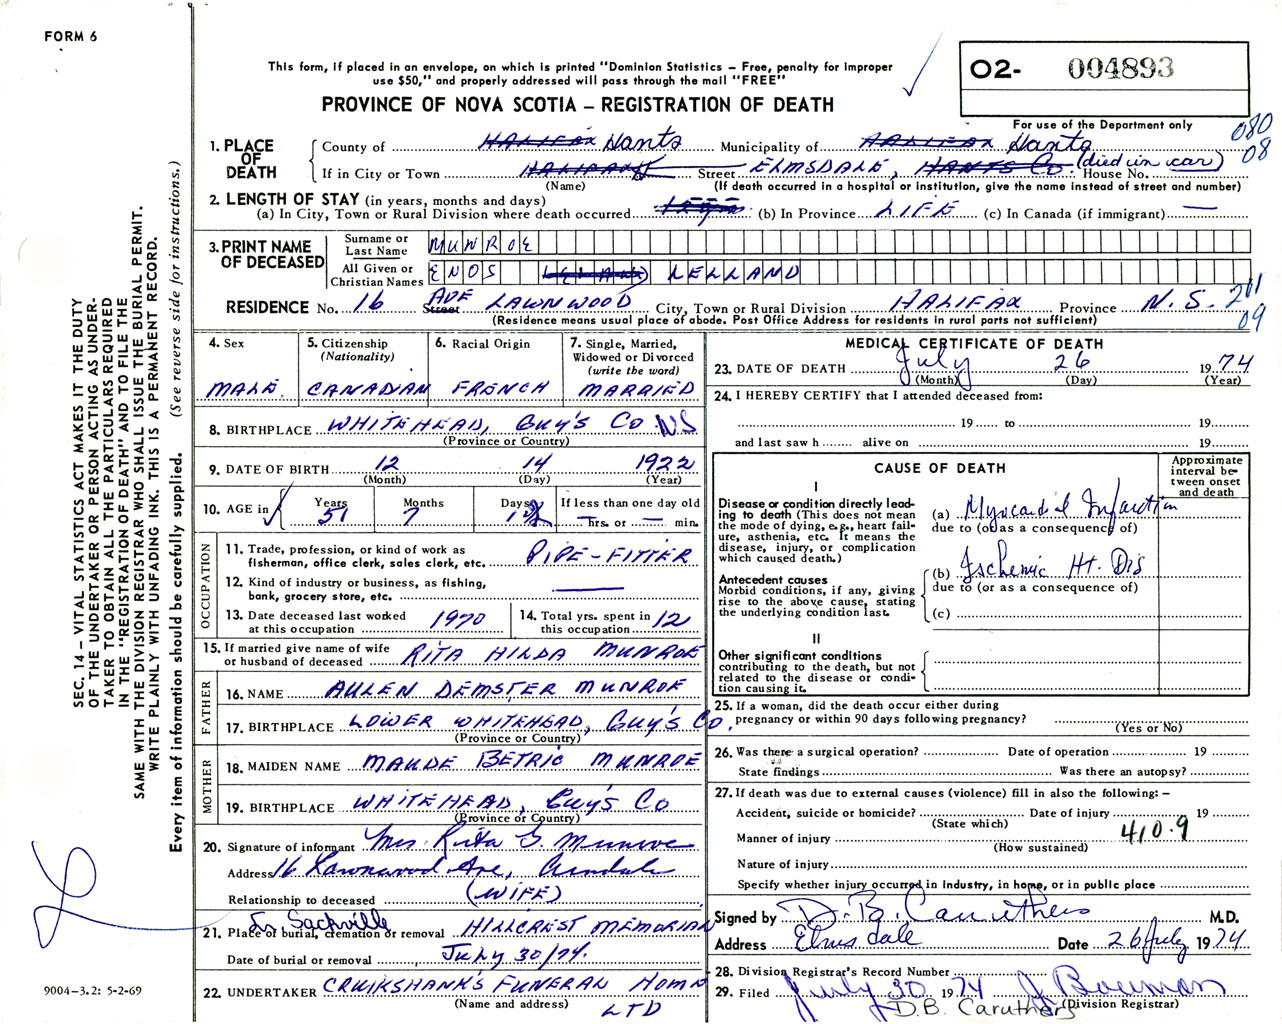 FORM 6
This form, if placed in an envelope, on which is printed "Dominion Statistics – Free, penalty for improper
use $50," and properly addressed will pass through the mail "FREE"
O2- 004893
PROVINCE OF NOVA SCOTIA – REGISTRATION OF DEATH
For use of the Department only
080
08
1. PLACE OF DEATH
County of HALIFAX Hants Municipality of HALIFAX Hants
If in City or Town Street ELMSDALE, HANTS CO. (died in car) House No.
(Name) (If death occurred in a hospital or institution, give the name instead of street and number)
2. LENGTH OF STAY (in years, months and days)
(a) In City, Town or Rural Division where death occurred (b) In Province LIFE (c) In Canada (if immigrant) —
3. PRINT NAME OF DECEASED
Surname or Last Name MUNROE
All Given or Christian Names ENOS LELLAND
RESIDENCE No. 16 Street AVE LAWNWOOD City, Town or Rural Division HALIFAX Province N.S. 201
09
(Residence means usual place of abode. Post Office Address for residents in rural parts not sufficient)
4. Sex
MALE.
5. Citizenship
(Nationality)
CANADIAN
6. Racial Origin
FRENCH
7. Single, Married,
Widowed or Divorced
(write the word)
MARRIED
8. BIRTHPLACE WHITEHEAD, GUY'S CO NS
(Province or Country)
9. DATE OF BIRTH 12 14 1922
(Month) (Day) (Year)
10. AGE in Years Months Days If less than one day old
51 7 12 — hrs. or — min.
OCCUPATION
11. Trade, profession, or kind of work as
fisherman, office clerk, sales clerk, etc. PIPE-FITTER
12. Kind of industry or business, as fishing,
bank, grocery store, etc. —
13. Date deceased last worked
at this occupation 1970
14. Total yrs. spent in
this occupation 12
15. If married give name of wife
or husband of deceased RITA HILDA MUNROE
FATHER
16. NAME ALLEN DEMSTER MUNROE
17. BIRTHPLACE LOWER WHITEHEAD, GUY'S CO,
(Province or Country)
MOTHER
18. MAIDEN NAME MAUDE BETRIC MUNROE
19. BIRTHPLACE WHITEHEAD, GUY'S CO
(Province or Country)
20. Signature of informant Mrs. Rita G. Munroe
Address 16 Lawnwood Ave, Armdale
Relationship to deceased (WIFE)
In Sackville
21. Place of burial, cremation or removal HILLCREST MEMORIAL
Date of burial or removal July 30/74.
22. UNDERTAKER CRUIKSHANK'S FUNERAL HOME
(Name and address) LTD
MEDICAL CERTIFICATE OF DEATH
23. DATE OF DEATH July 26 1974
(Month) (Day) (Year)
24. I HEREBY CERTIFY that I attended deceased from:
19 to 19
and last saw h alive on 19
CAUSE OF DEATH
Approximate
interval be-
tween onset
and death
I
Disease or condition directly lead-
ing to death (This does not
mean the mode of dying, e.g., heart fail-
ure, asthenia, etc. It means the
disease, injury, or complication
which caused death.)
(a) Myocardial Infarction
due to (or as a consequence of)
Antecedent causes
Morbid conditions, if any, giving
rise to the above cause, stating
the underlying condition last.
(b) Ischemic Ht. Dis
due to (or as a consequence of)
(c)
II
Other significant conditions
contributing to the death, but not
related to the disease or condi-
tion causing it.
25. If a woman, did the death occur either during
pregnancy or within 90 days following pregnancy?
(Yes or No)
26. Was there a surgical operation? Date of operation 19
State findings Was there an autopsy?
27. If death was due to external causes (violence) fill in also the following: –
Accident, suicide or homicide? Date of injury 19
(State which)
410.9
Manner of injury
(How sustained)
Nature of injury
Specify whether injury occurred in Industry, in home, or in public place
Signed by D. B. Caruthers M.D.
Address Elmsdale Date 26 July 1974
28. Division Registrar's Record Number
29. Filed July 30 1974 J Bowman
(Division Registrar)
D.B. Caruthers
SEC. 14 – VITAL STATISTICS ACT MAKES IT THE DUTY
OF THE UNDERTAKER OR PERSON ACTING AS UNDER-
TAKER TO OBTAIN ALL THE PARTICULARS REQUIRED
IN THE "REGISTRATION OF DEATH" AND TO FILE THE
SAME WITH THE DIVISION REGISTRAR WHO SHALL ISSUE THE BURIAL PERMIT.
WRITE PLAINLY WITH UNFADING INK. THIS IS A PERMANENT RECORD.
Every item of information should be carefully supplied. (See reverse side for instructions,)
9004-3.2: 5-2-69